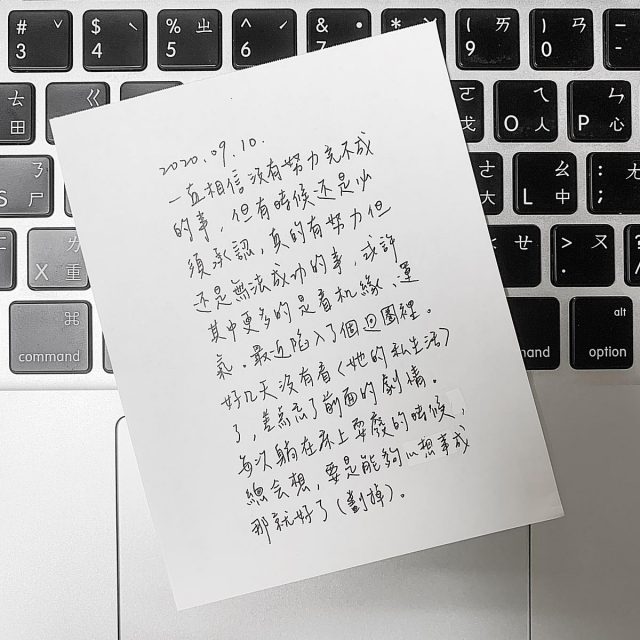 # 3 ˇ
$ 4 ˋ
% 5 ㄓ
^ 6
& 7
*
( 9 ㄞ
) 0 ㄢ
-
ㄊ 田
ㄍ
ㄛ
O ㄟ 人
P ㄣ 心
S ㄋ 尸
ㄜ
L ㄠ 中
: ; ㄤ
X ㄌ 重
ㄝ
> . ㄡ
⌘ command
command
alt option
2020.09.10.
一直相信沒有努力完不成
的事，但有時候還是必
須承認，真的有努力但
還是無法成功的事，或許
其中更多的是看机緣、運
氣。最近陷入了個回圈裡。
好几天沒有看《她的私生活》
了，差點忘了前面的劇情。
每次躺在床上耍廢的時候，
總会想，要是能夠心想事成
那就好了（劃掉）。